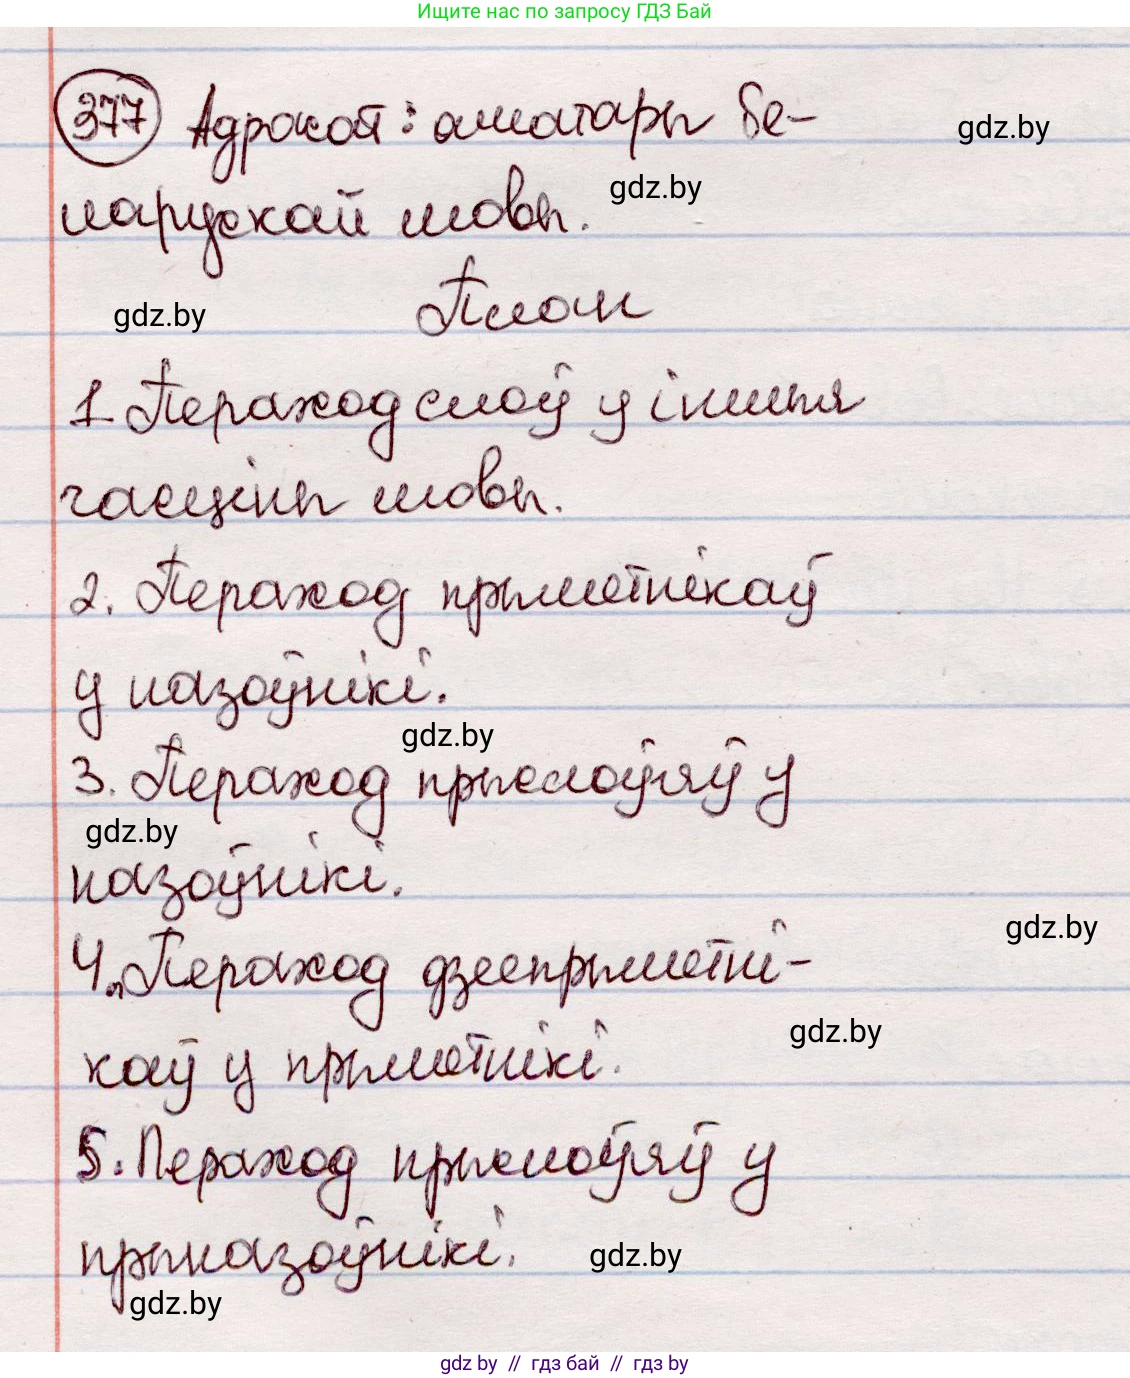 Ищите нас по запросу ГДЗ Бай
377 Адрасат: аматары бе-
gdz.by
ларускай мовы.
gdz.by
План
gdz.by
1. Пераход слоў у іншыя
часціны мовы.
2. Пераход прыметнікаў
у назоўнікі.
gdz.by
3. Пераход прыслоўяў у
gdz.by
назоўнікі.
gdz.by
4. Пераход дзеепрыметні-
gdz.by
каў у прыметнікі.
5. Пераход прыслоўяў у
прыназоўнікі.
gdz.by
gdz.by
gdz by // гдз бай // gdz by